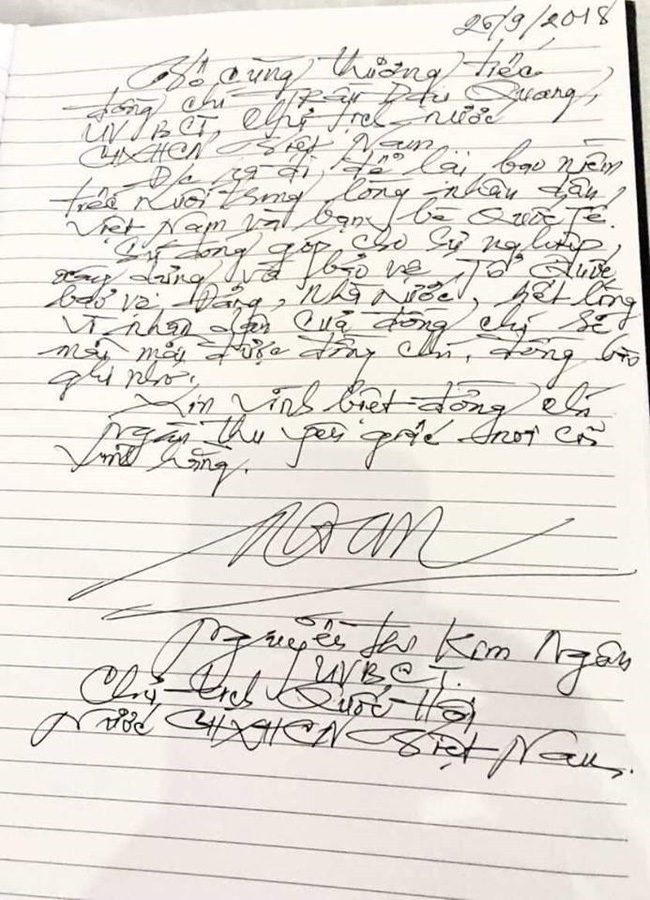 26/9/2018
Vô cùng thương tiếc
đồng chí Trần Đại Quang,
UV BCT, Chủ tịch nước
CHXHCN Việt Nam.
Đ/c ra đi để lại bao niềm
tiếc nuối trong lòng nhân dân
Việt Nam và bạn bè Quốc Tế.
Sự đóng góp cho sự nghiệp
xây dựng và bảo vệ Tổ Quốc,
bảo vệ Đảng, Nhà nước, hết lòng
vì nhân dân của đồng chí sẽ
mãi mãi được đồng chí, đồng bào
ghi nhớ.
Xin vĩnh biệt đồng chí
ngàn thu yên giấc nơi cõi
vĩnh hằng.
Ngân
Nguyễn Thị Kim Ngân
UVBCT.
Chủ tịch Quốc Hội
Nước CHXHCN Việt Nam.